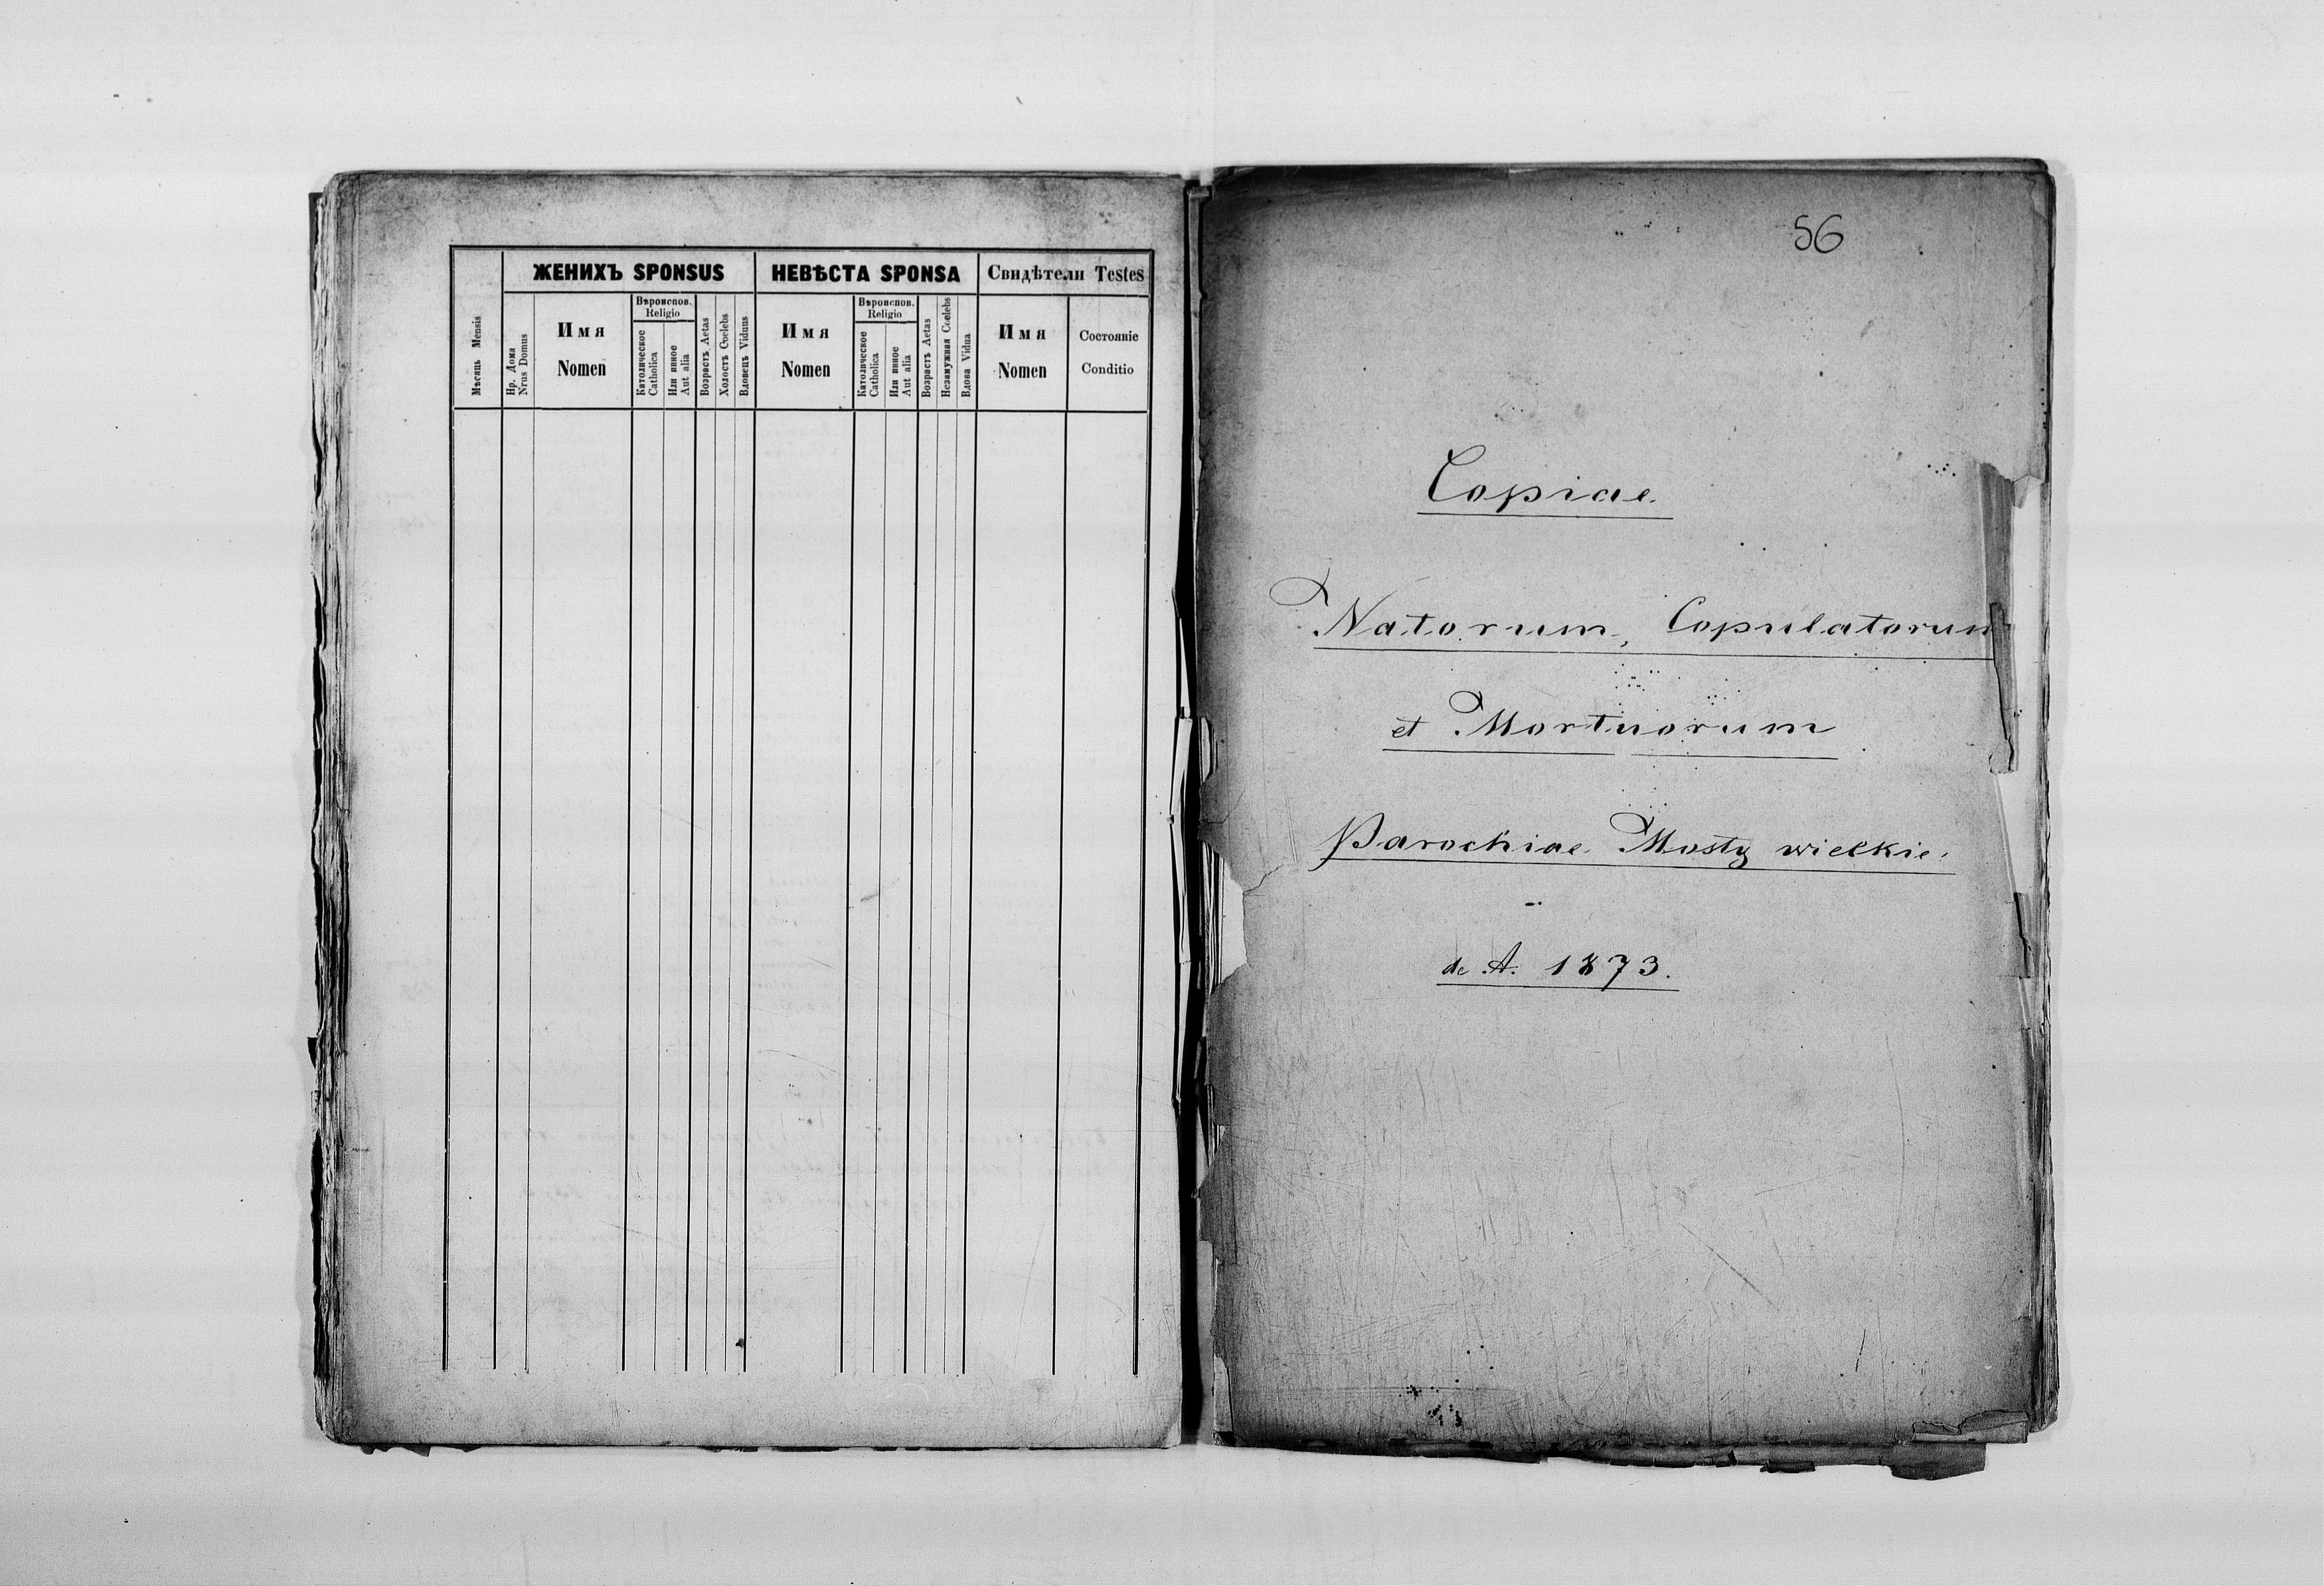 ЖЕНИХЪ SPONSUS
НЕВѢСТА SPONSA
Свидѣтели Testes
Мѣсяцъ Mensis
Нр. Дома
Nrus Domus
Имя
Nomen
Вѣроиспов.
Religio
Католическое
Catholica
Или иное
Aut alia
Возрастъ Aetas
Холостъ Coelebs
Вдовецъ Viduus
Имя
Nomen
Вѣроиспов.
Religio
Католическое
Catholica
Или иное
Aut alia
Возрастъ Aetas
Незамужная Coelebs
Вдова Vidua
Имя
Nomen
Состояніе
Conditio
56
Copiae
Natorum, Copulatorum
et Mortuorum
Parochiae Mosty wielkie.
de A. 1873.